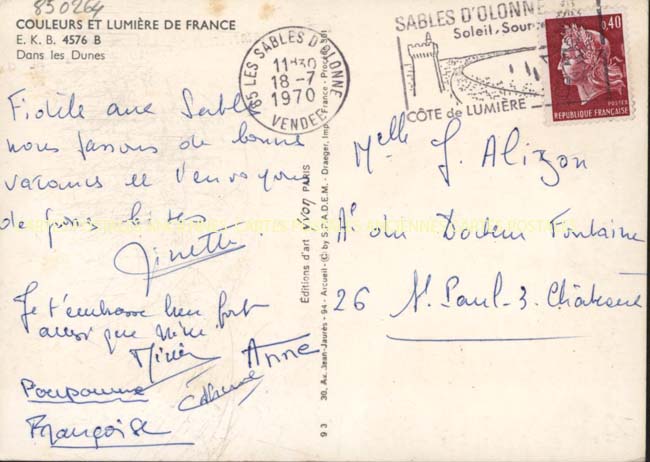 850264
COULEURS ET LUMIÈRE DE FRANCE
E. K. B. 4576 B
Dans les Dunes
85 LES SABLES D'OLONNE
11H30
18-7
1970
VENDEE
SABLES D'OLONNE
Soleil, Sour
CÔTE de LUMIÈRE
0,40
POSTES
REPUBLIQUE FRANÇAISE
Fidèle aux Sables
nous passons de bonnes
vacances et t'envoyons
de gros bises
Ginette
Je t'embrasse bien fort
ainsi que
Anne
Pouponne
Françoise
Editions d'art Yvon PARIS
30, Av. Jean-Jaurès - 94 - Arcueil - © by S.P.A.D.E.M. - Draeger, Imp. France
93
Melle J. Alizon
At du Docteur Fontaine
26 St Paul-3-Châteaux
CARTES POSTALES ANCIENNES CARTES POSTALES